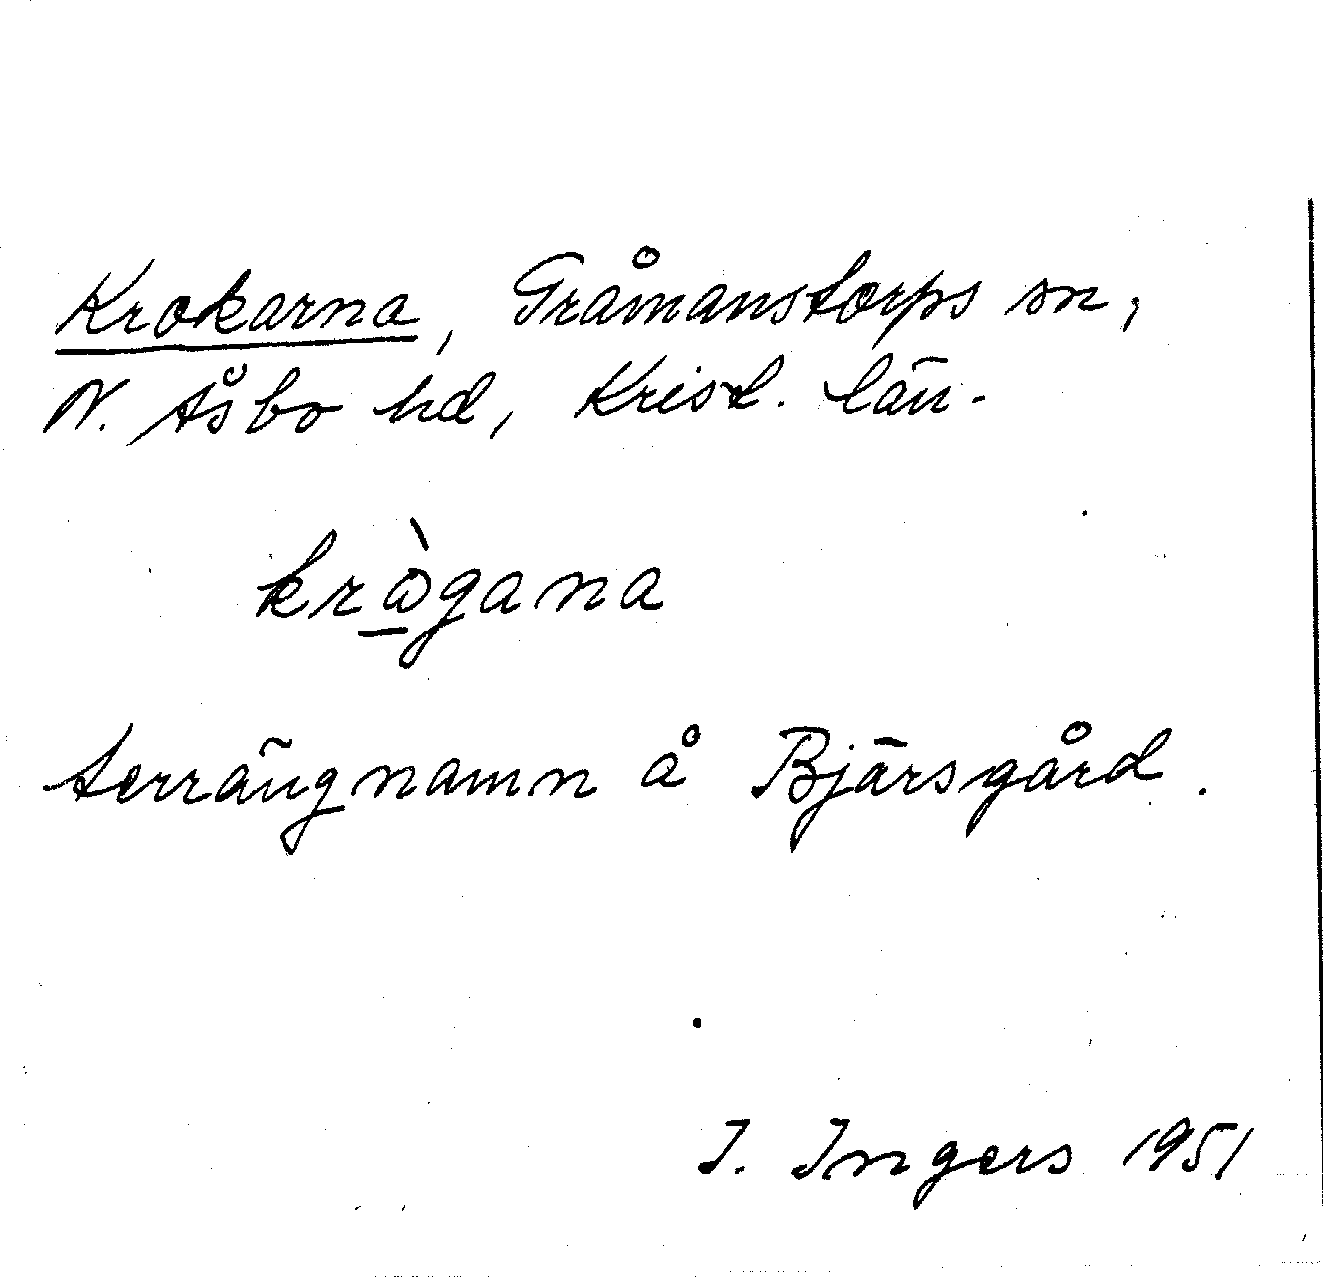 Krokarna, Gråmanstorps sn,
N. Åsbo hd, Krist. län.
krògana
terrängnamn å Bjärsgård.
I. Ingers 1951